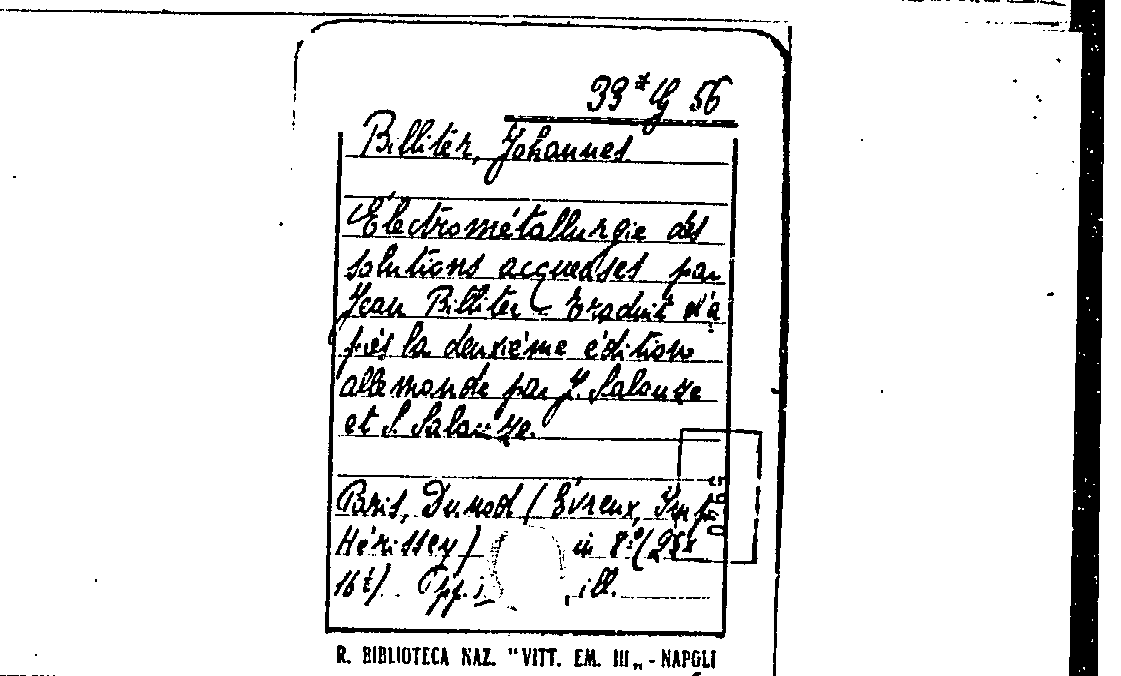 33* G 56
Billiter, Johannes
Électrométallurgie des
solutions acqueuses par
Jean Billiter - Traduit d'a
près la deuxième édition
allemande par J. Salauze
et S. Salauze.
Paris, Dunod (Évreux, Imp.
Hérissey) in 8° (25x
16½). Pp. , ill.
R. BIBLIOTECA NAZ. "VITT. EM. III„ - NAPOLI